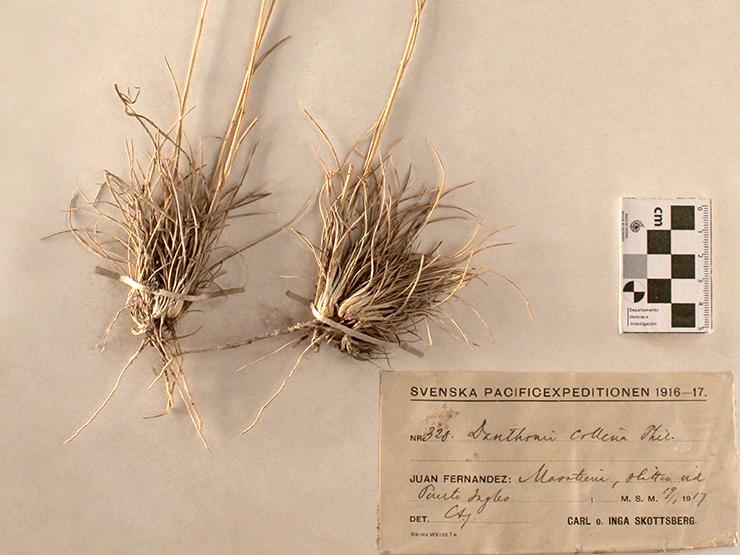 cm
0 1 2 3 4 5
Departamento
ciencias e
investigación
SVENSKA PACIFICEXPEDITIONEN 1916—17.
NR 328. Danthonia collina Phil.
JUAN FERNANDEZ: Masatierra,
Puerto Ingles M. S. M. 1917
DET.
CARL O. INGA SKOTTSBERG.
BRINK WEISS TR